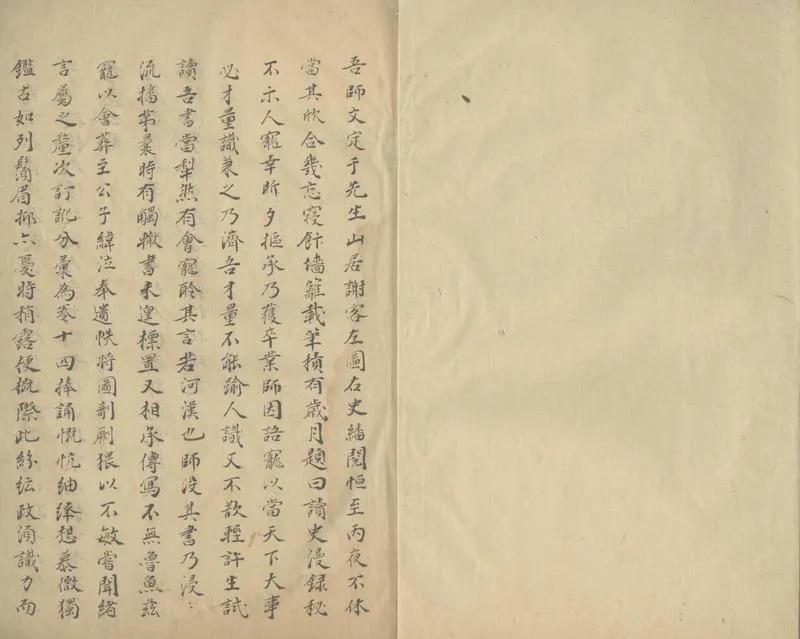 吾師文定于先生山居謝客左圖右史繙閱恒至丙夜不休
當其欣合幾忘寢飰墻籬載筆積有歲月題曰讀史漫録秘
不示人寵幸昕夕摳承乃獲卒業師因語寵以當天下大事
必才量識兼之乃濟吾才量不能踰人識又不欲輕許生試
讀吾書當犁然有會寵聆其言若河漢也師没其書乃浸〻
流播第曩時有觸輙書未遑標置又相承傳寫不無魯魚兹
寵以會葬至公子緯泣奉遺帙將圖剞劂猥以不敏嘗聞緒
言屬之釐次訂訛分彙為卷十四捧誦慨忼紬繹想慕微獨
鑑古如列鬚眉抑亦憂時稍露梗概際此紛紜政湏識力而